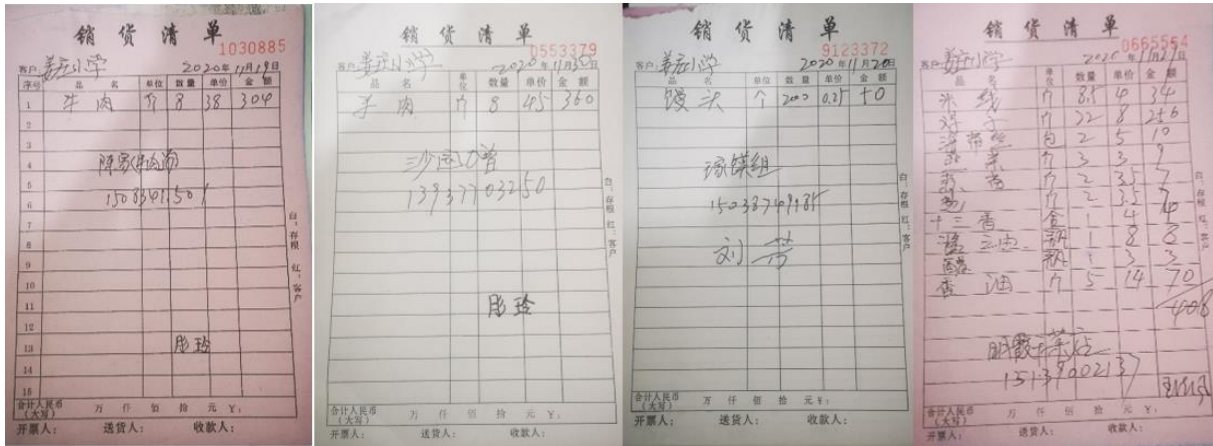 销货清单
1030885
客户:姜庄小学 2020年11月19日
序号 品名 单位 数量 单价 金额
1 牛肉 斤 8 38 304
2
3
4 陈家牛肉汤
5
6
7
8
9
10
11
12
13 彤玲
14
15
白:存根 红:客户
合计人民币(大写) 万 仟 佰 拾 元 ¥:
开票人: 送货人: 收款人:
销货清单
0553379
客户:姜庄小学 2020年11月30日
品名 单位 数量 单价 金额
羊肉 斤 8 45 360
13937703250
彤玲
白:存根 红:客户
合计人民币(大写) 万 仟 佰 拾 元 ¥:
开票人: 送货人: 收款人:
销货清单
9123372
客户:姜庄小学 2020年11月20日
品名 单位 数量 单价 金额
馒头 个 200 0.25 50
琢镆组
15038749185
刘芳
白:存根 红:客户
合计人民币(大写) 万 仟 佰 拾 元 ¥:
开票人: 送货人: 收款人:
销货清单
0665554
客户:姜庄小学 2020年11月27日
品名 单位 数量 单价 金额
米线 斤 8.5 4 34
斤 22 8 256
海带丝 包 2 5 10
斤 3 3 9
斤 2 3.5 7
斤 2 3.5 7
十三香 盒 1 4 4
瓶 1 8 8
瓶 1 3 3
香油 斤 5 14 70
408
明霞干菜店
15139002137
白:存根 红:客户
合计人民币(大写) 万 仟 佰 拾 元 ¥:
开票人: 送货人: 收款人: